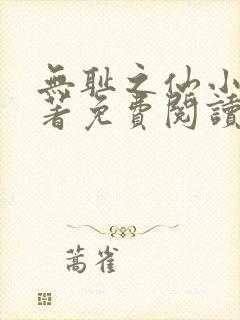 無耻之仙小
著免費閱讀
蒿雀